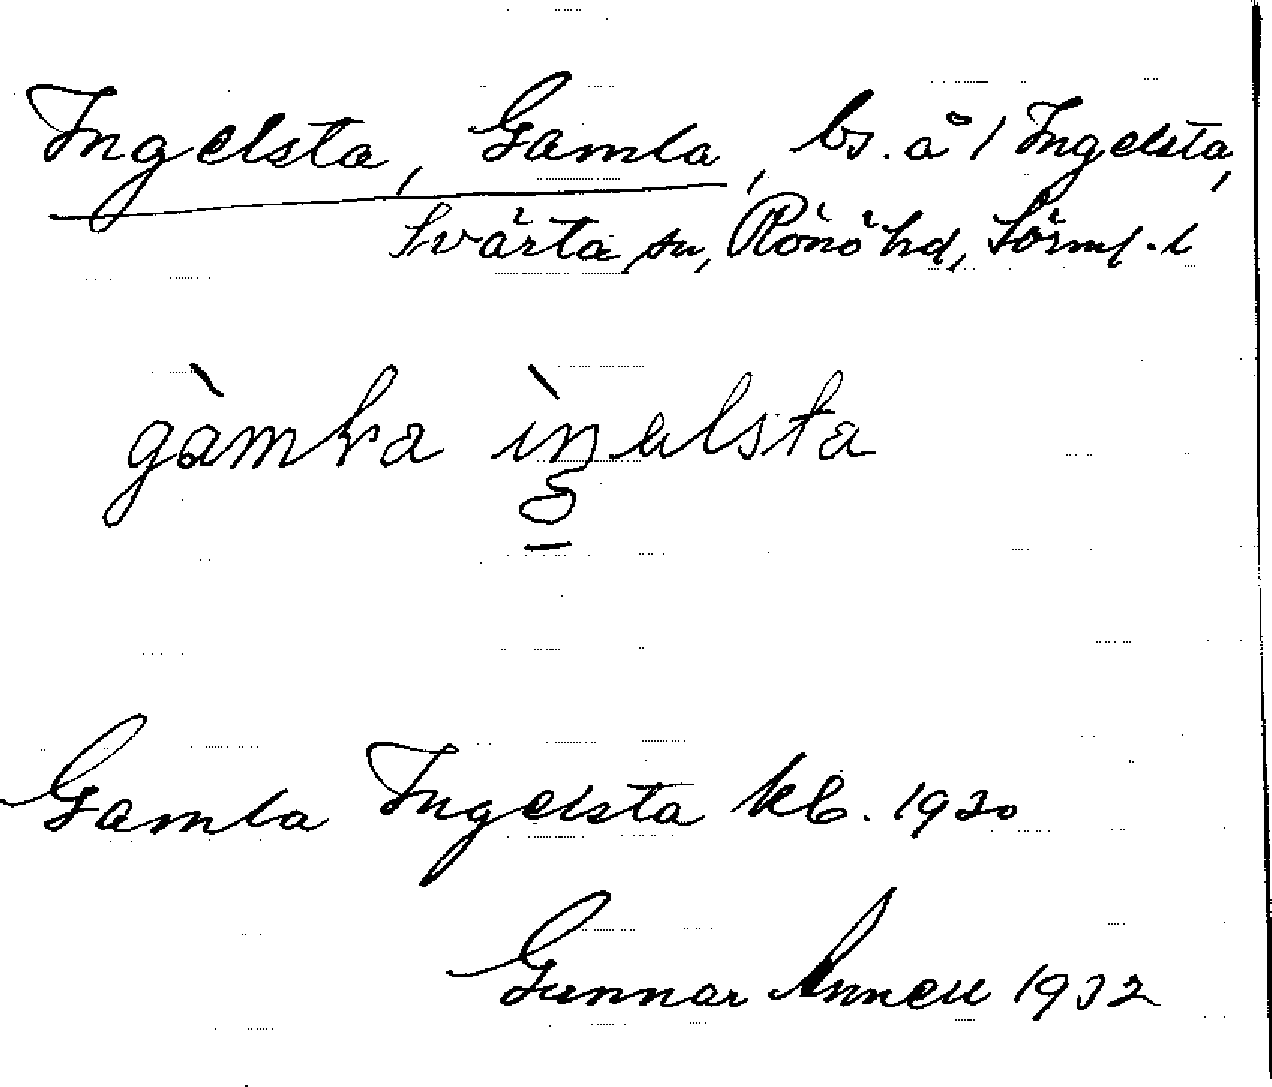 Ingelsta, Gamla, bs. å 1 Ingelsta,
Svärta sn, Rönö hd, Sörml. l
gàmla ìŋəlsta
Gamla Ingelsta kb. 1930
Gunnar Annell 1932